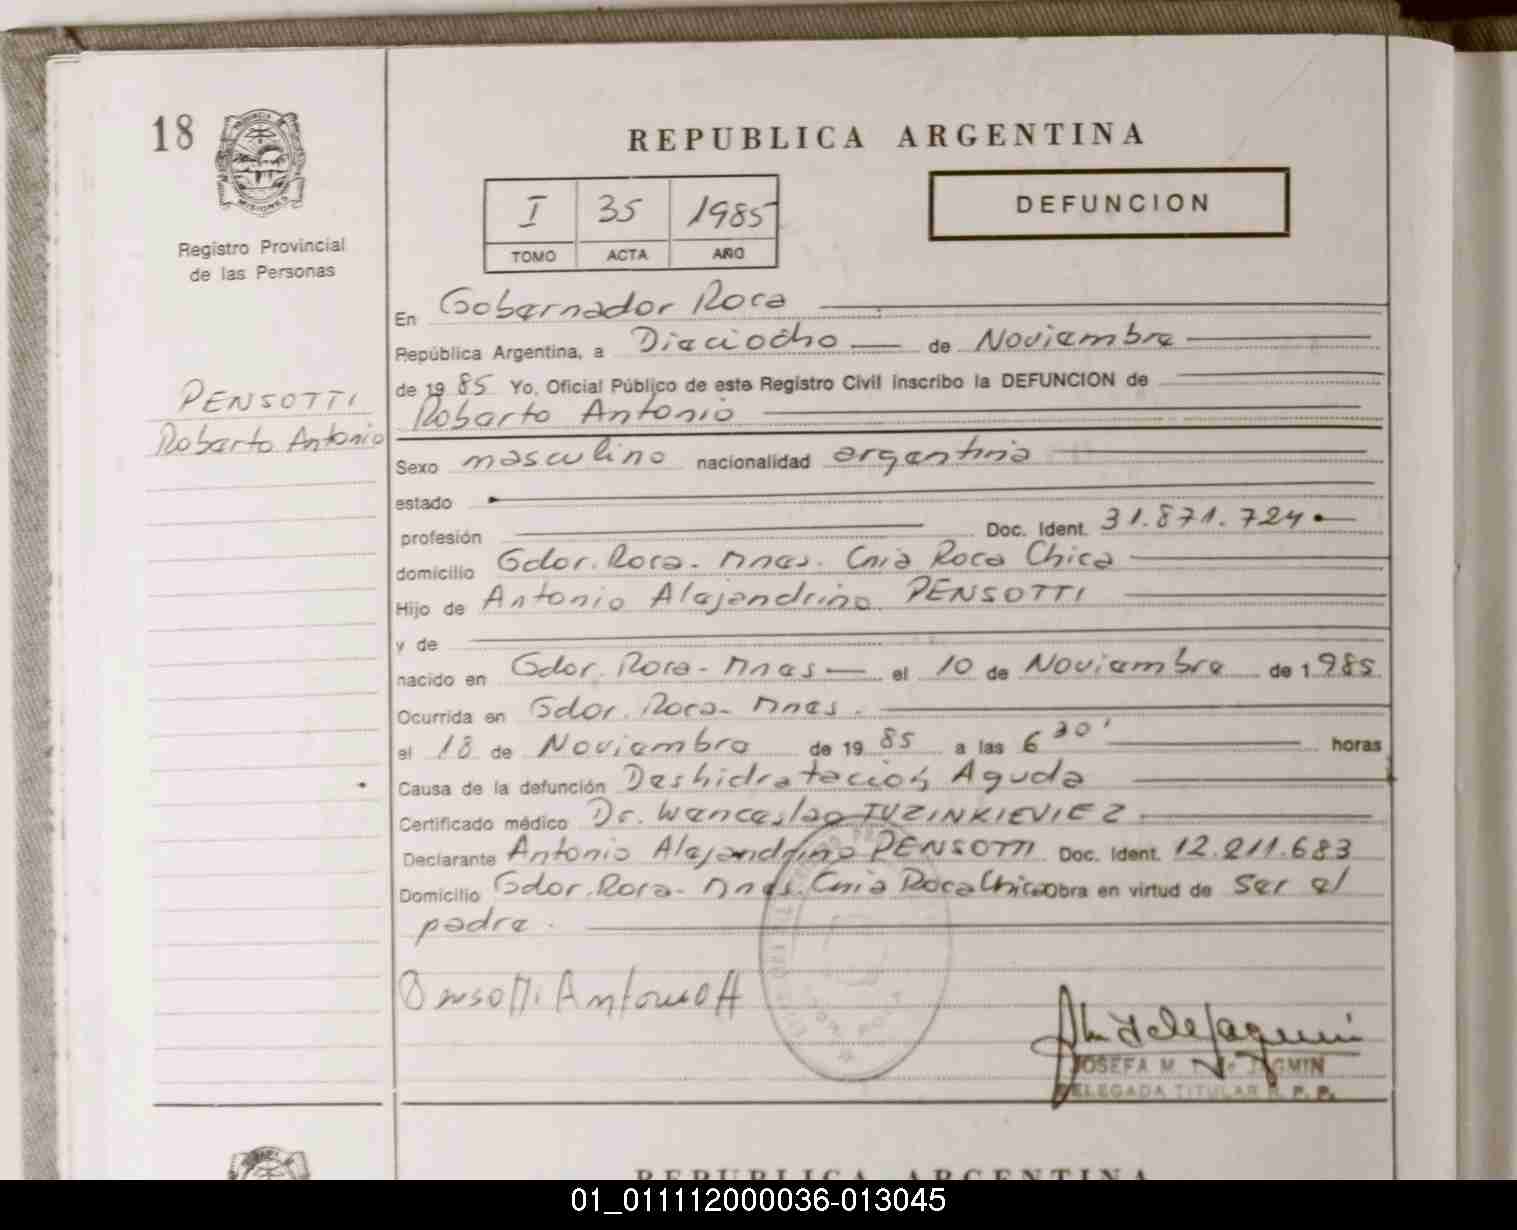 18
PROVINCIA DE
MISIONES
Registro Provincial
de las Personas
REPUBLICA ARGENTINA
DEFUNCION
I 35 1985
TOMO ACTA AÑO
PENSOTTI
Roberto Antonio
En Gobernador Roca
República Argentina, a Dieciocho de Noviembre
de 1985 Yo, Oficial Público de este Registro Civil inscribo la DEFUNCION de
Roberto Antonio
Sexo masculino nacionalidad argentina
estado
profesión Doc. Ident. 31.871.724
domicilio Gdor. Roca - Mnes. Cnia Roca Chica
Hijo de Antonio Alejandrino PENSOTTI
y de
nacido en Gdor. Roca - Mnes el 10 de Noviembre de 1985
Ocurrida en Gdor. Roca - Mnes.
el 18 de Noviembre de 1985 a las 6 30' horas
Causa de la defunción Deshidratación Aguda
Certificado médico Dr. Wenceslao TUZINKIEVIEZ
Declarante Antonio Alejandrino PENSOTTI Doc. Ident. 12.211.683
Domicilio Gdor. Roca - Mnes. Cnia Roca Chica obra en virtud de ser el
padre.
JOSEFA M. DE JAGMIN
DELEGADA TITULAR R. P. P.
REPUBLICA ARGENTINA
01_011112000036-013045